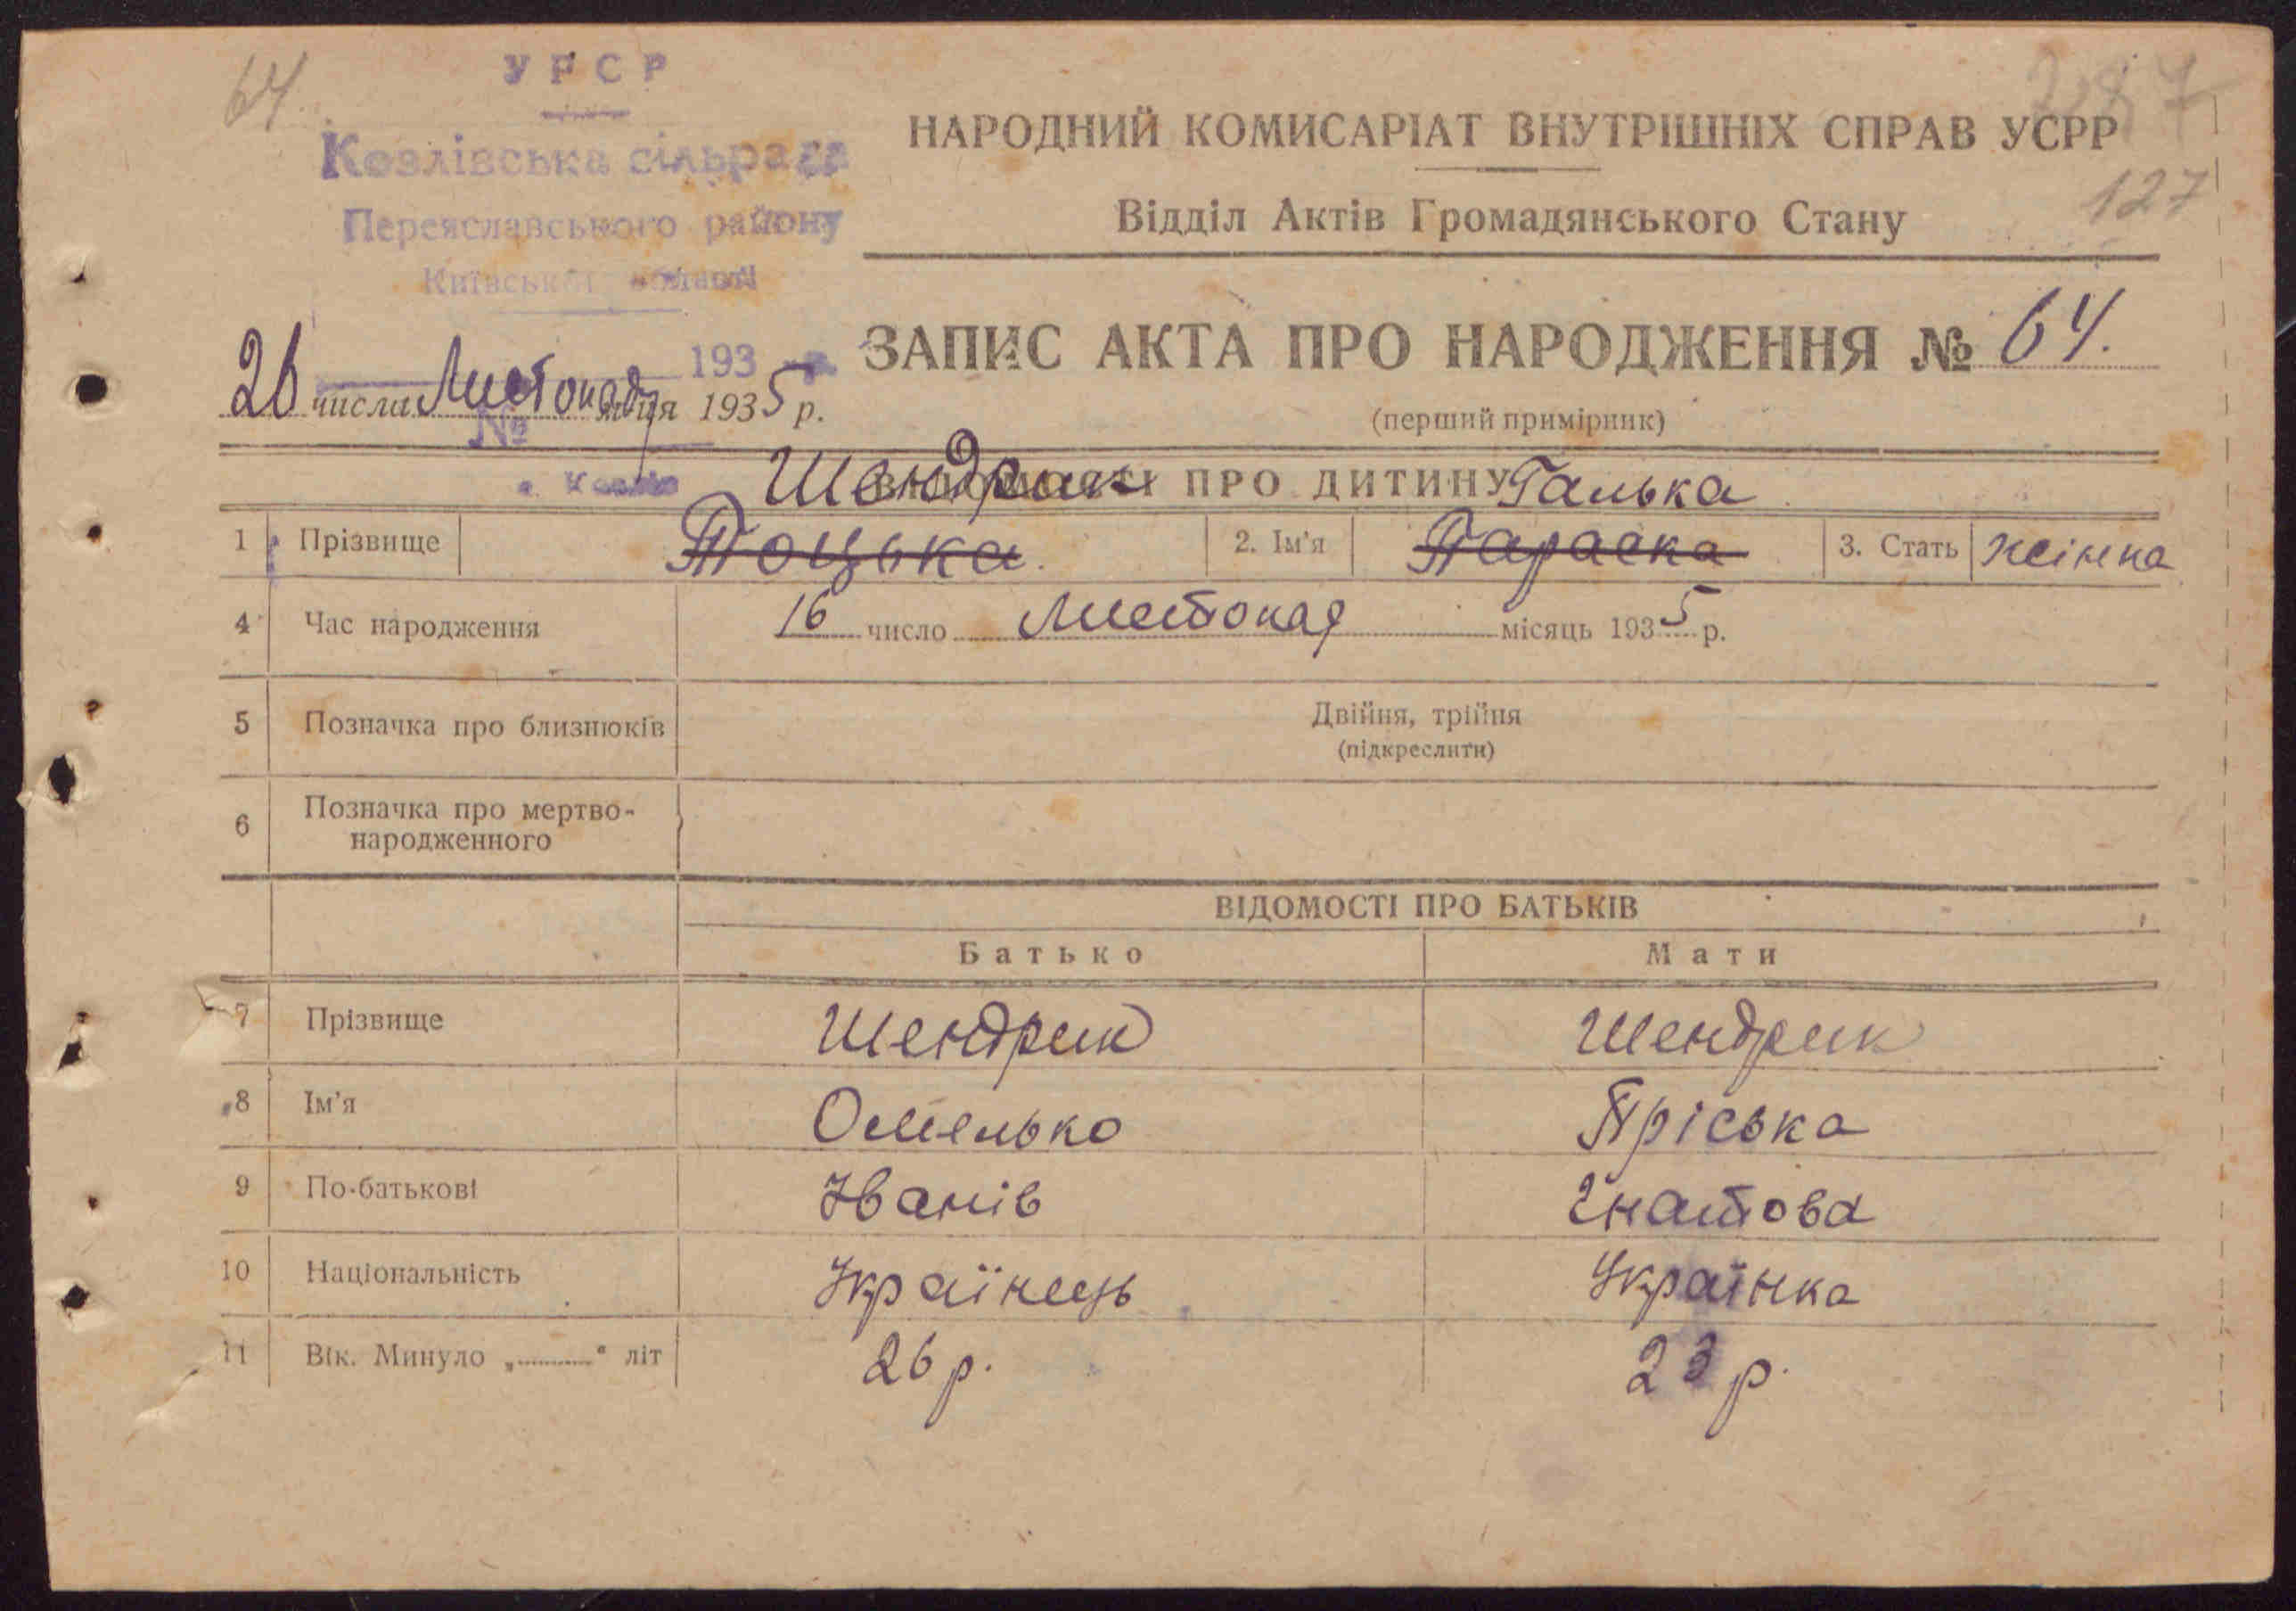 64.
УРСР
Козлівська сільрада
Переяславського району
Київської області
193
№
НАРОДНИЙ КОМИСАРІАТ ВНУТРІШНІХ СПРАВ УСРР
127
Відділ Актів Громадянського Стану
ЗАПИС АКТА ПРО НАРОДЖЕННЯ № 64.
26 числа Листопад м-ця 1935 р.
(перший примірник)
ВІДОМОСТІ ПРО ДИТИНУ
Шендрик Галька
1 Прізвище Тоцька. 2. Ім'я Параска 3. Стать жінка
4 Час народження 16 число Листопад місяць 1935 р.
5 Позначка про близнюків Двійня, трійня
(підкреслити)
6 Позначка про мертво-
народженного
ВІДОМОСТІ ПРО БАТЬКІВ
Батько Мати
7 Прізвище Шендрик Шендрик
8 Ім'я Омелько Пріська
9 По-батькові Іванів Гнатова
10 Національність Українець Українка
11 Вік. Минуло „..........“ літ 26 р. 23 р.